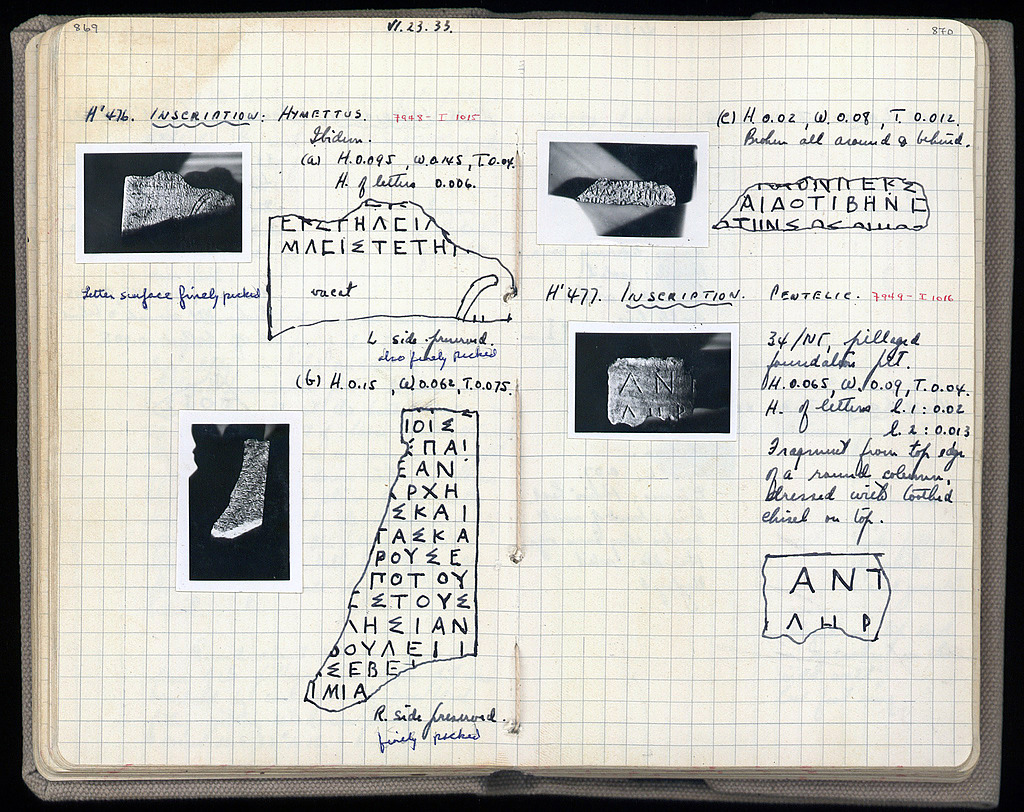 869
VI.23.33.
H'476. INSCRIPTION: HYMETTUS. 7948 - I 1015
Ibidem.
(a) H.0.095, W.0.145, T.0.04.
H. of letters 0.006.
ΜΛΕΙΣΤΕΤΗ
vacat
Letter surface finely picked
L. side preserved.
also finely picked
(b) H.0.15, W.0.062, T.0.075.
ΙΟΙΣ
ΕΠΑΙ
ΕΑΝ
ΡΧΗ
ΣΚΑΙ
ΤΑΣΚΑ
ΡΟΥΣΕ
ΠΟΤΟΥ
ΕΣΤΟΥΣ
ΛΗΣΙΑΝ
ΟΥΛΕΙΙ
ΣΕΒΕ
ΙΜΙΑ
R. side preserved.
finely picked
870
(c) H.0.02, W.0.08, T.0.012.
Broken all around & behind.
ΑΙΔΟΤΙΒΗΝΕ
H'477. INSCRIPTION. PENTELIC. 7949 - I 1016
34/ΝΓ, pillaged
foundation pit.
H.0.065, W.0.09, T.0.04.
H. of letters l.1: 0.02
l.2: 0.013
Fragment from top edge
of a round column,
dressed with toothed
chisel on top.
ΑΝΤ
ΛΗΡ